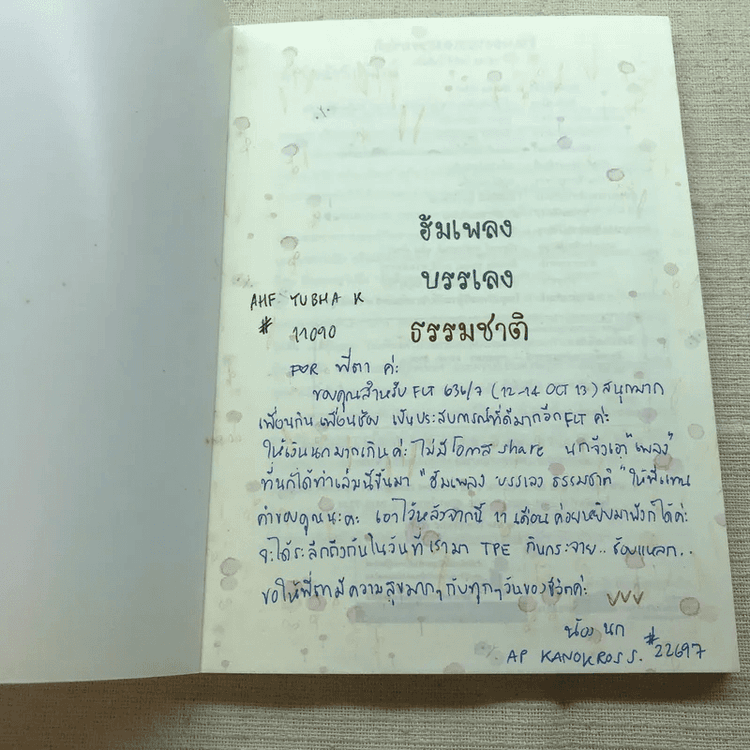 ฮัมเพลง
บรรเลง
ธรรมชาติ
AHF YUBHA K
# 11090
FOR พี่ตา ค่ะ
ขอบคุณสำหรับ FLT 636/7 (12-14 OCT 13) สนุกมาก
เพื่อนกิน เพื่อนช้อป เป็นประสบการณ์ที่ดีมากอีก FLT ค่ะ
ให้เงินนกมาเกินค่ะ ไม่มีโอกาส share นกจึงเอา "เพลง"
ที่นกได้ทำเล่มนี้ขึ้นมา "ฮัมเพลง บรรเลง ธรรมชาติ" ให้พี่แทน
คำขอบคุณนะคะ เอาไว้หลังจากนี้ 11 เดือน ค่อยหยิบมาฟังก็ได้ค่ะ
จะได้ระลึกถึงกันในวันที่เรามา TPE กินกระจาย.. ช้อปแหลก..
ขอให้พี่ตามีความสุขมากๆ กับทุกๆ วันของชีวิตค่ะ
น้อง นก
AP KANOKROS S. #22697